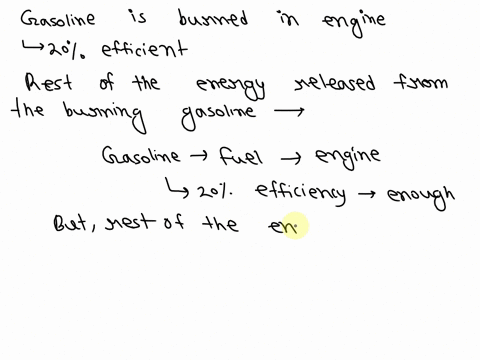 Gasoline is burned in engine
↳ 20% efficient
Rest of the energy released from
the burning gasoline →
Gasoline → fuel → engine
↳ 20% efficiency → enough
But, rest of the en